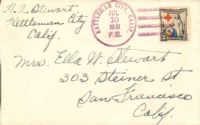 H. S. Stewart,
Kettleman City
Calif.
KETTLEMAN CITY, CALIF.
JUL
10
1931
P.M.
Mrs. Ella W. Stewart
303 Steiner St
San Francisco
Calif.